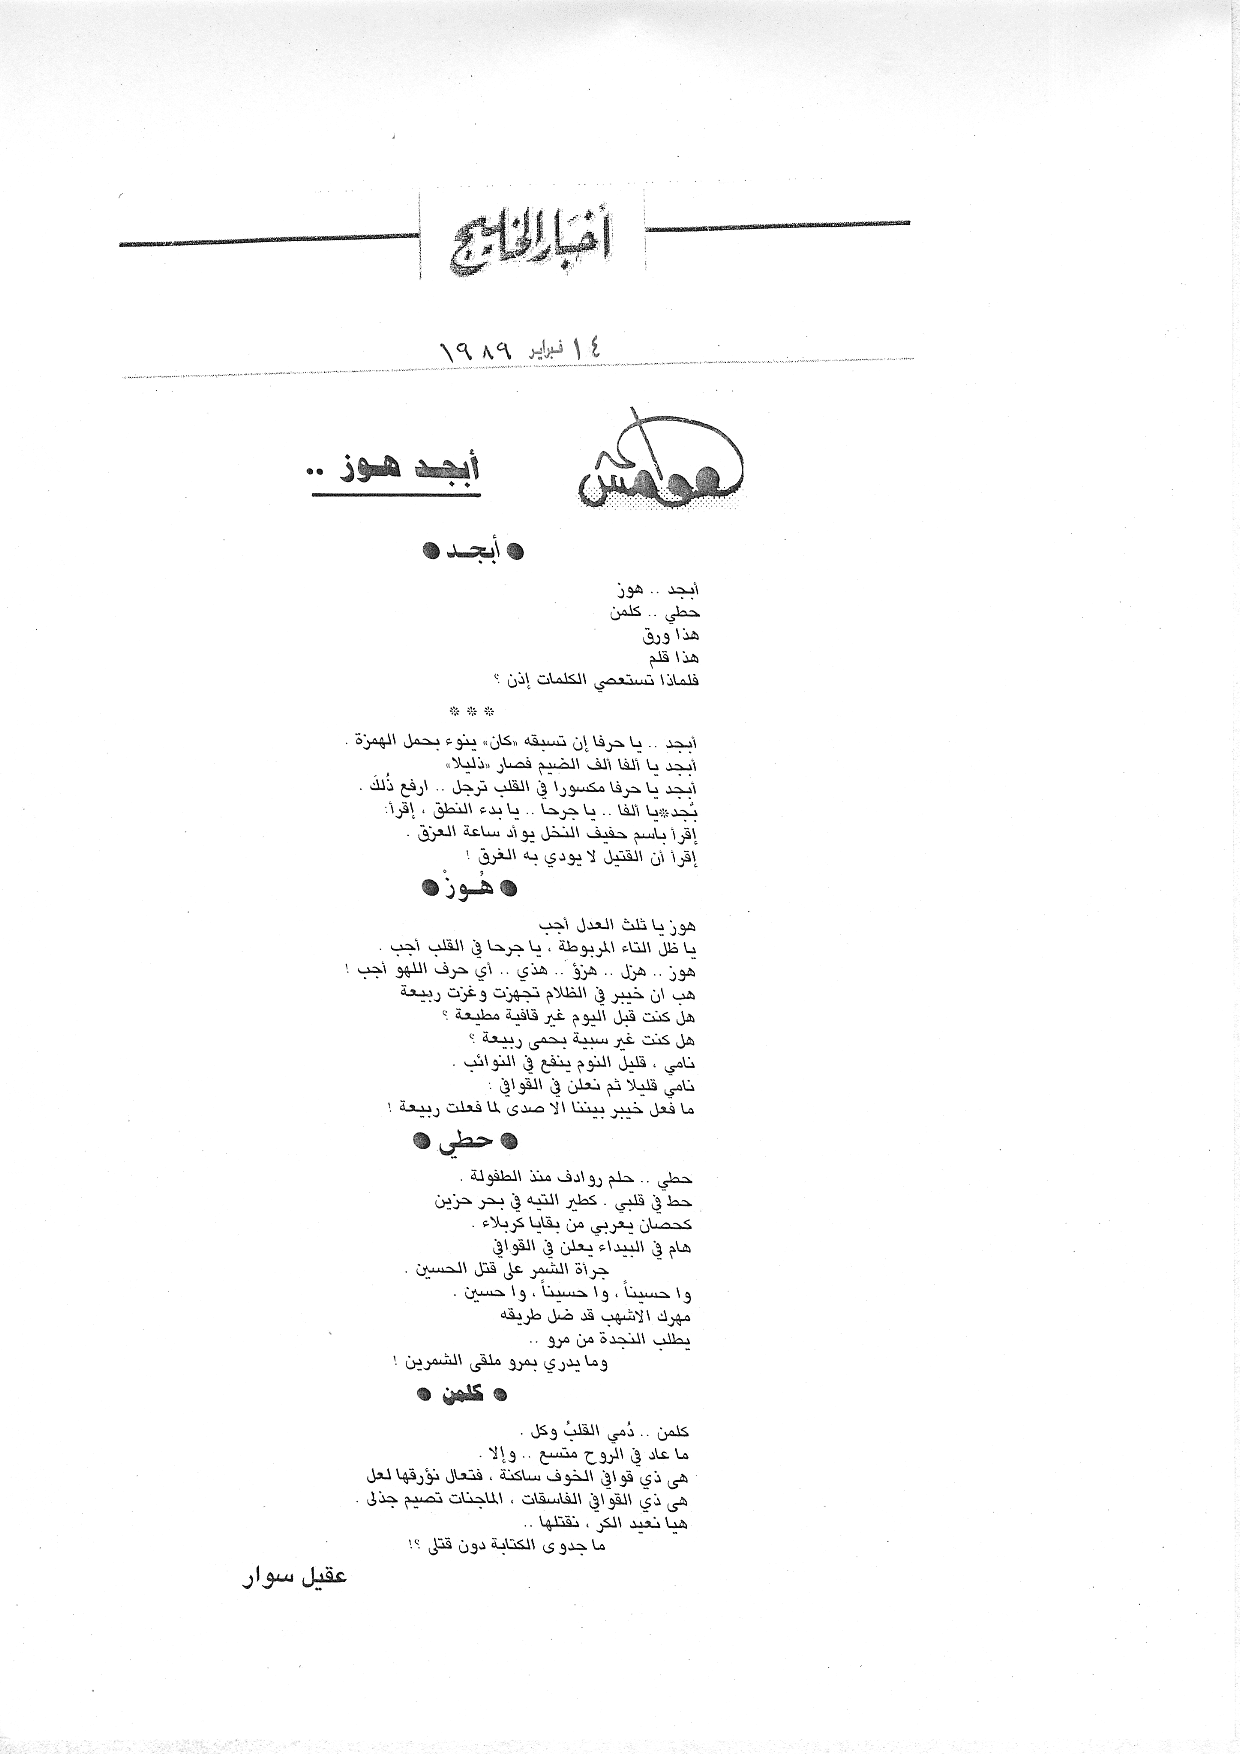 أخبار الخليج
١٤ فبراير ١٩٨٩
هوامش
أبجد هوز ..
● أبجد ●
أبجد .. هوز
حطي .. كلمن
هذا ورق
هذا قلم
فلماذا تستعصي الكلمات إذن ؟
* * *
أبجد .. يا حرفا إن تسبقه «كان» ينوء بحمل الهمزة .
أبجد يا ألفا ألف الضيم فصار «ذليلا»
أبجد يا حرفا مكسورا في القلب ترجل .. ارفع ذُلكَ .
بُجد*يا ألفا .. يا جرحا .. يا بدء النطق ، إقرأ:
إقرأ باسم حفيف النخل يوأد ساعة العزق .
إقرأ أن القتيل لا يودي به الغرق !
● هُوزْ ●
هوز يا ثلث العدل أجب
يا ظل التاء المربوطة ، يا جرحا في القلب أجب .
هوز .. هزل .. هزؤ .. هذي .. أي حرف اللهو أجب !
هب ان خيبر في الظلام تجهزت وغزت ربيعة
هل كنت قبل اليوم غير قافية مطيعة ؟
هل كنت غير سبية بحمى ربيعة ؟
نامي ، قليل النوم ينفع في النوائب .
نامي قليلا ثم نعلن في القوافي :
ما فعل خيبر بيننا الا صدى لما فعلت ربيعة !
● حطي ●
حطي .. حلم روادف منذ الطفولة .
حط في قلبي . كطير التيه في بحر حزين
كحصان يعربي من بقايا كربلاء .
هام في البيداء يعلن في القوافي
جرأة الشمر على قتل الحسين .
وا حسيناً ، وا حسيناً ، وا حسين .
مهرك الاشهب قد ضل طريقه
يطلب النجدة من مرو ..
وما يدري بمرو ملقى الشمرين !
● كلمن ●
كلمن .. دُمي القلبُ وكل .
ما عاد في الروح متسع .. وإلا .
هى ذي قوافي الخوف ساكنة ، فتعال نؤرقها لعل
هى ذي القوافي الفاسقات ، الماجنات تصيم جذلى .
هيا نعيد الكر ، نقتلها ..
ما جدوى الكتابة دون قتلى ؟!
عقيل سوار